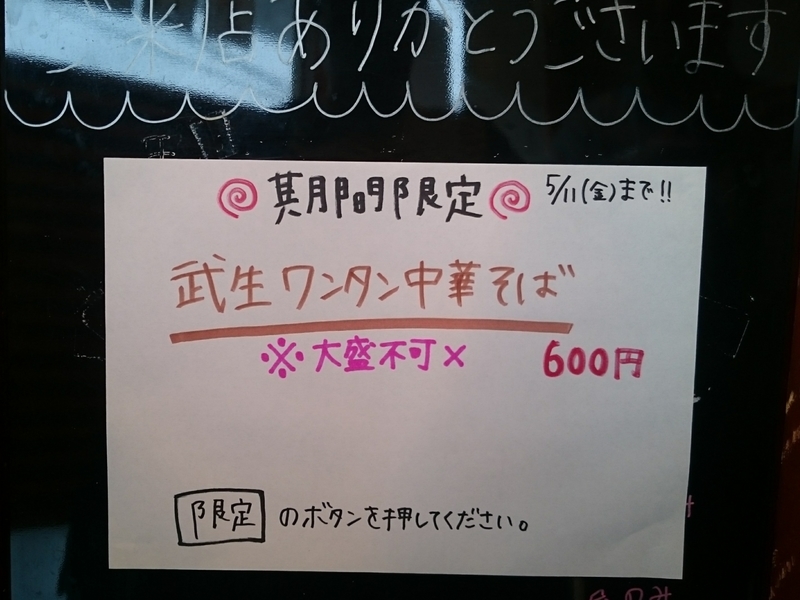 ご来店ありがとうございます
期間限定 5/11(金)まで!!
武生ワンタン中華そば
※大盛不可× 600円
限定 のボタンを押してください。